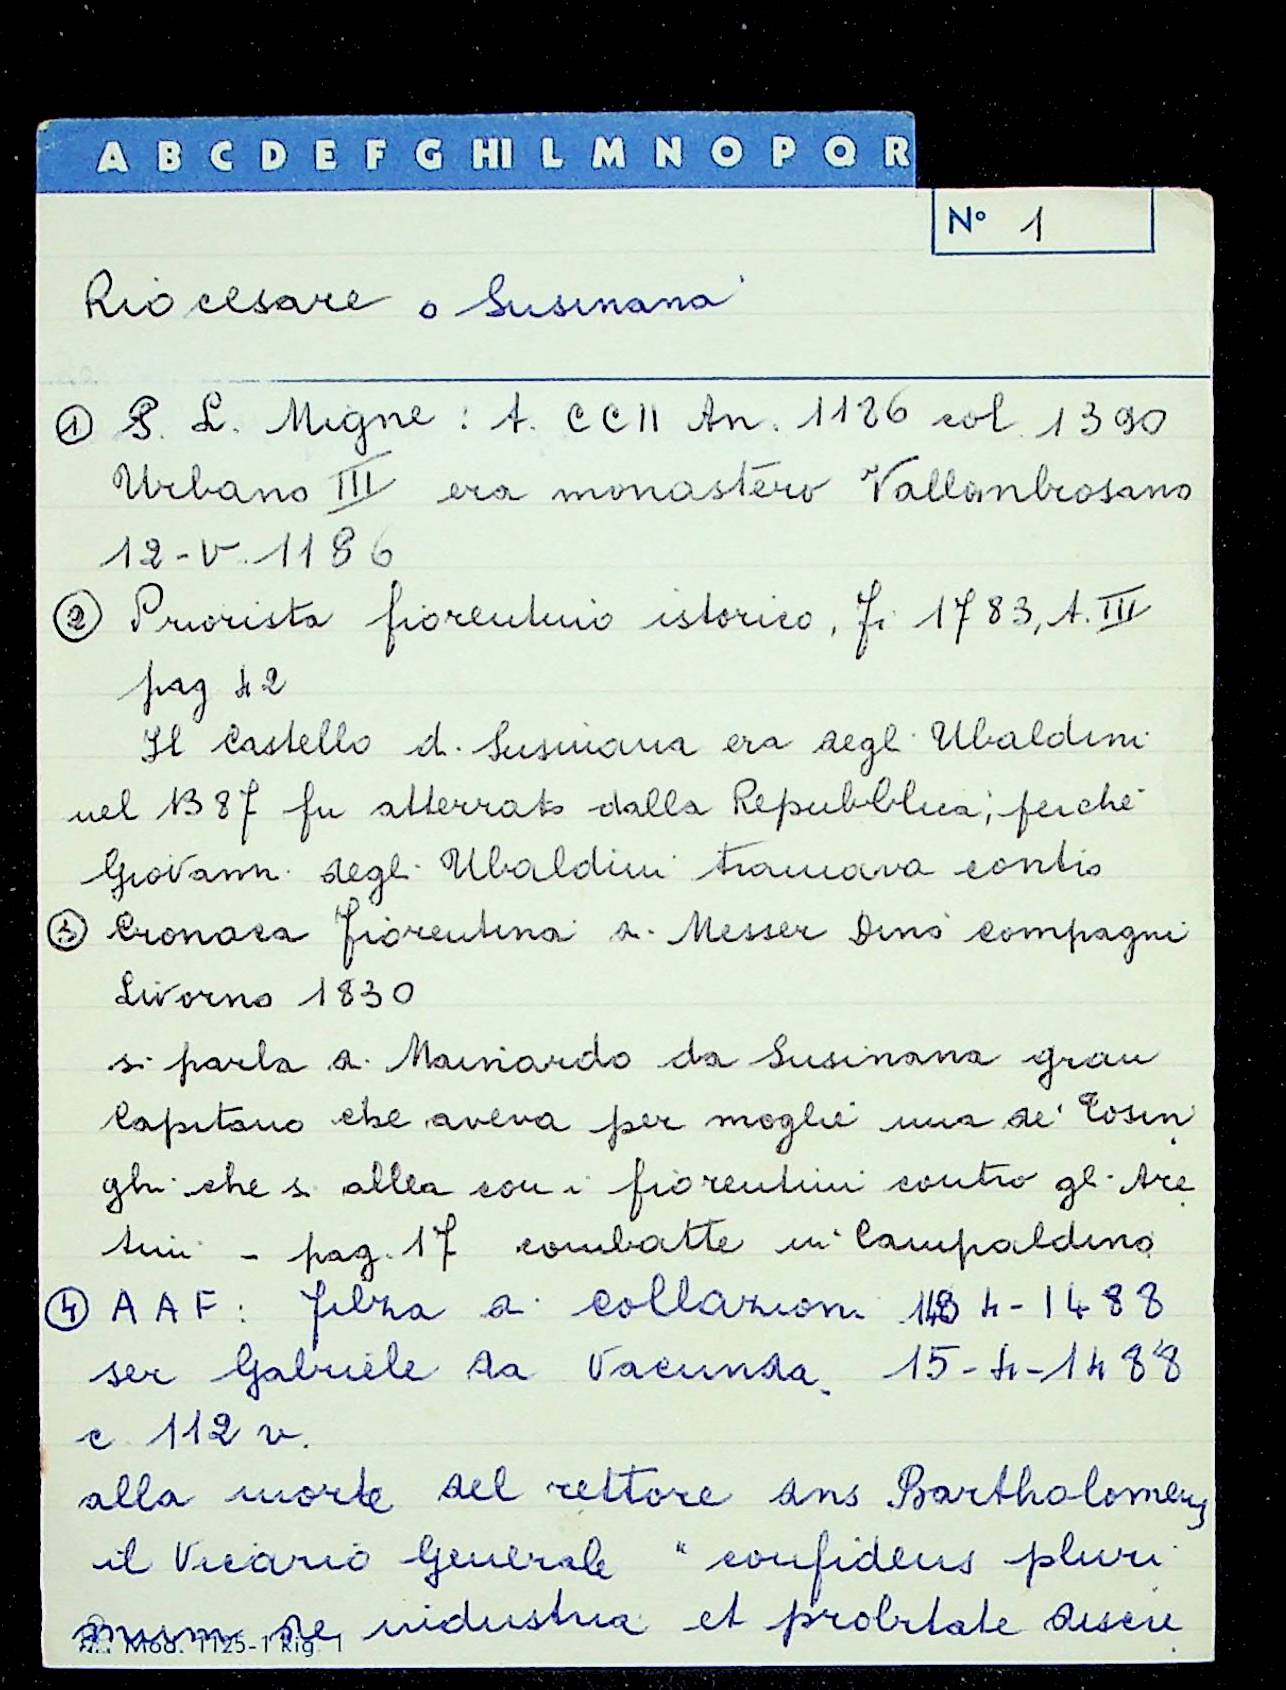 A B C D E F G HI L M N O P Q R
N° 1
Riocesare o Susinana
① P. L. Migne : t. CCII An. 1186 col. 1390
Urbano III era monastero Vallombrosano
12-V-1186
② Priorista fiorentino istorico, Fi 1783, t. III
pag 42
Il Castello di Susinana era degli Ubaldini
nel 1387 fu atterrato dalla Repubblica; perché
Giovanni degli Ubaldini tramava contro
③ Cronaca Fiorentina di Messer Dino Compagni
Livorno 1830
si parla di Mainardo da Susinana gran
Capitano che aveva per moglie una de' Tosin
ghi che si allea con i fiorentini contro gli Are
tini - pag. 17 combatte in Campaldino
④ A A F : Filza di collazioni 1484-1488
ser Gabriele da Vacunda 15-4-1488
c. 112 v.
alla morte del rettore dns Bartholomeus
il Vicario Generale " confidens pluri
mum de industria et probitate discre
Mod. 1125-1 Rig. 1